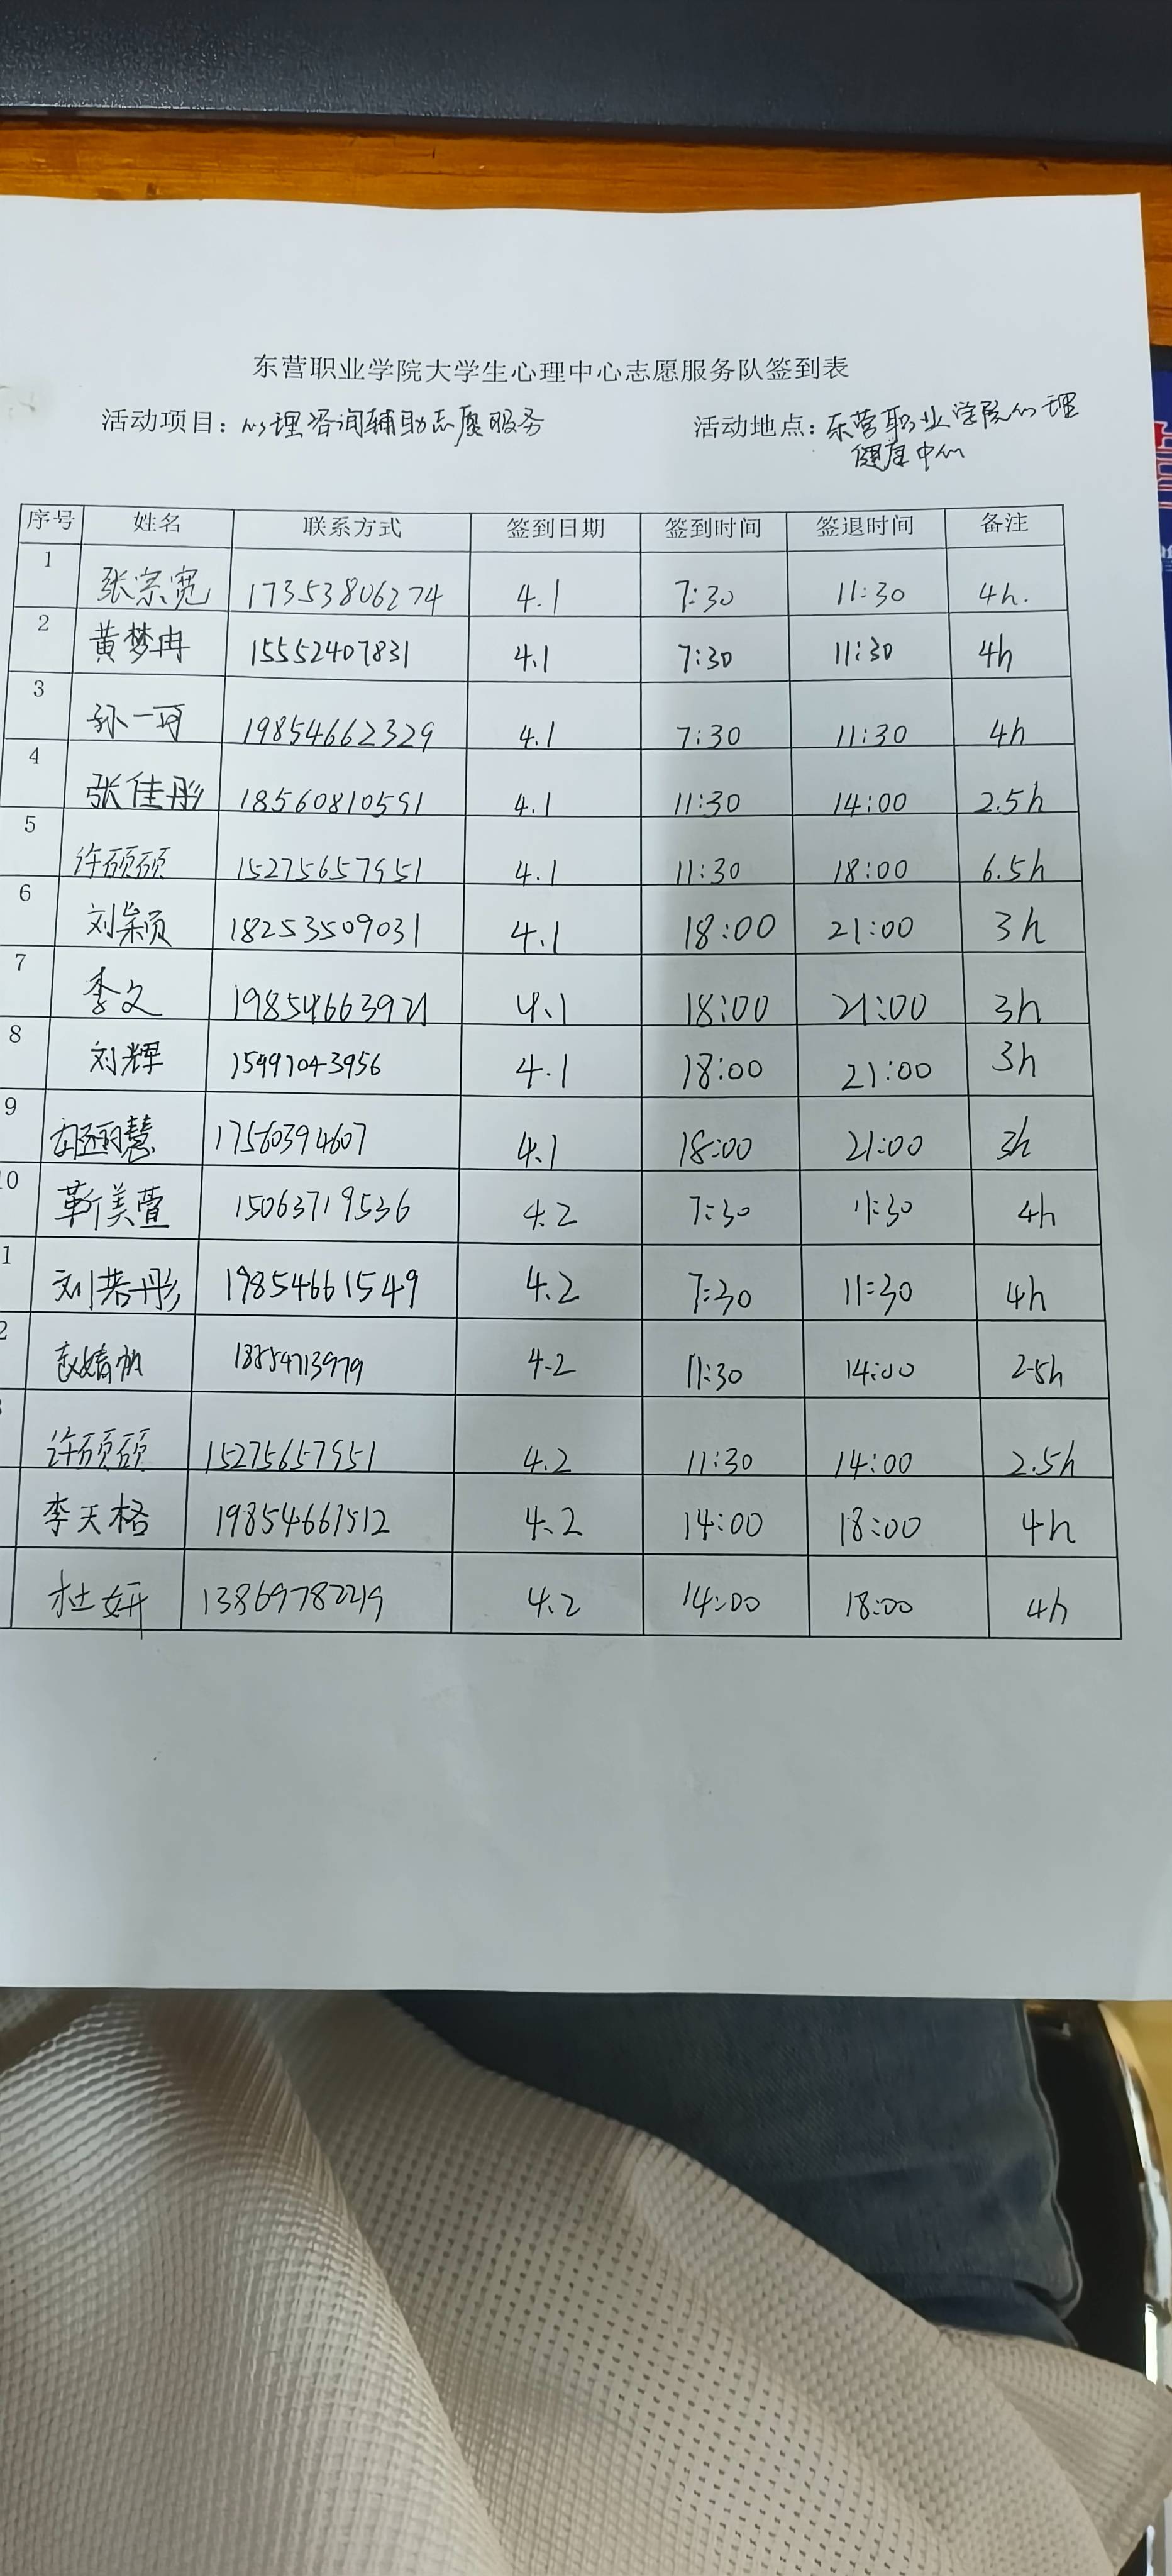 东营职业学院大学生心理中心志愿服务队签到表
活动项目：心理咨询辅助志愿服务 活动地点：东营职业学院心理
健康中心
序号 姓名 联系方式 签到日期 签到时间 签退时间 备注
1 张宗宽 17353806274 4.1 7:30 11:30 4h.
2 黄梦冉 15552407831 4.1 7:30 11:30 4h
3 孙一珂 19854662329 4.1 7:30 11:30 4h
4 张佳彤 18560810591 4.1 11:30 14:00 2.5h
5 许硕硕 15275657951 4.1 11:30 18:00 6.5h
6 刘颖 18253509031 4.1 18:00 21:00 3h
7 李文 19854663921 4.1 18:00 21:00 3h
8 刘辉 15997043956 4.1 18:00 21:00 3h
9 慧 17560394607 4.1 18:00 21:00 3h
10 靳美萱 15063719536 4.2 7:30 11:30 4h
1 刘若彤 19854661549 4.2 7:30 11:30 4h
2 赵婧 18854713979 4.2 11:30 14:00 2.5h
许硕硕 15275657951 4.2 11:30 14:00 2.5h
李天格 19854661512 4.2 14:00 18:00 4h
杜妍 13869782219 4.2 14:00 18:00 4h